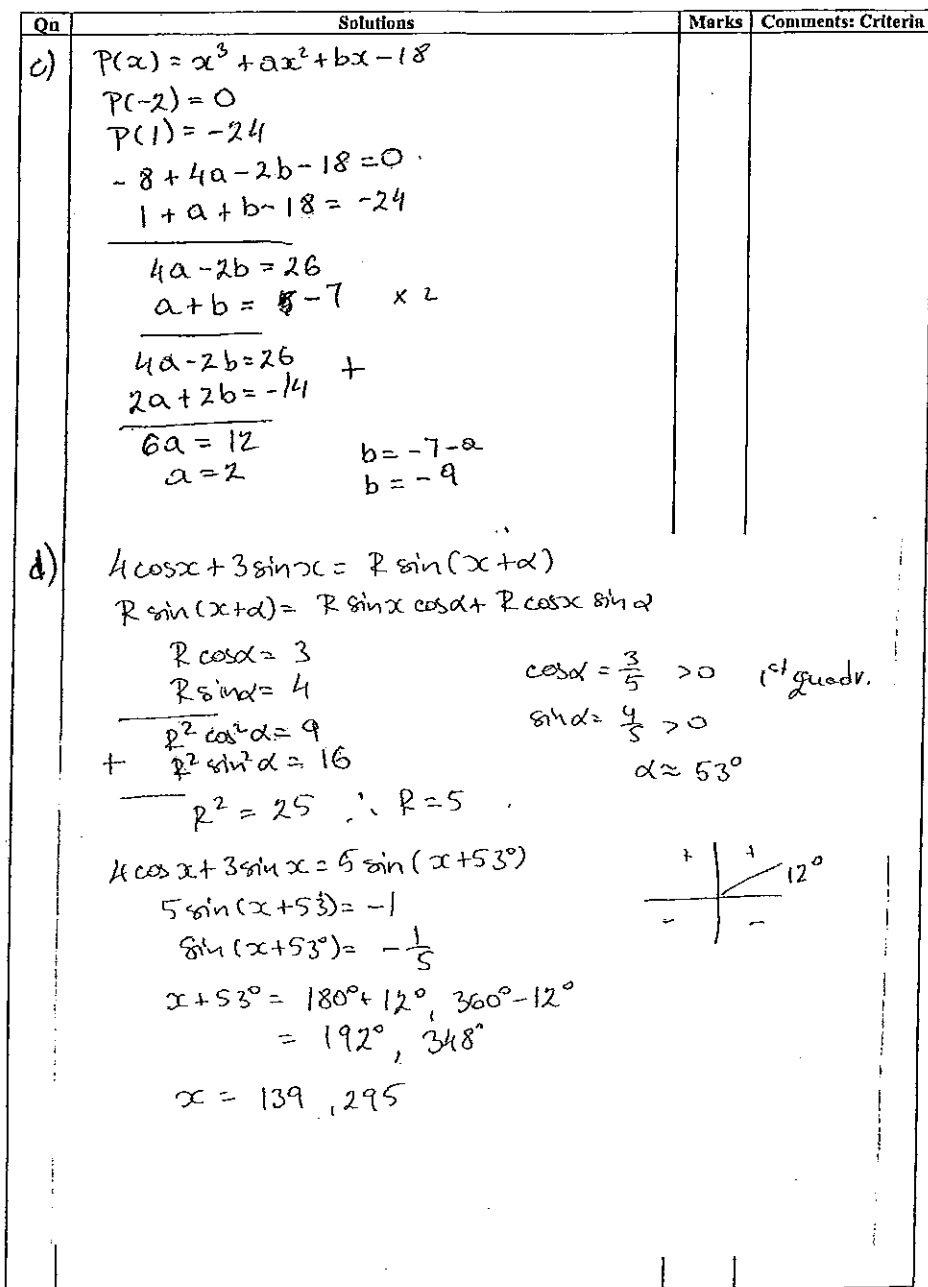 Qn Solutions Marks Comments: Criteria
c) P(x) = x³ + ax² + bx - 18
P(-2) = 0
P(1) = -24
- 8 + 4a - 2b - 18 = 0.
1 + a + b - 18 = -24
4a - 2b = 26
a + b = -7 x 2
4a - 2b = 26 +
2a + 2b = -14
6a = 12
a = 2
b = -7-a
b = -9
d) 4cosx + 3sinx = R sin(x+α)
R sin(x+α) = R sinx cosα + R cosx sinα
R cosα = 3
R sinα = 4
R² cos²α = 9
+ R² sin²α = 16
R² = 25 ∴ R = 5.
cosα = 3/5 > 0 1st quadr.
sinα = 4/5 > 0
α ≈ 53°
4cos x + 3sin x = 5 sin(x+53°)
5 sin(x+53°) = -1
sin(x+53°) = -1/5
x + 53° = 180° + 12°, 360° - 12°
= 192°, 348°
x = 139, 295
+ + 12°
- -